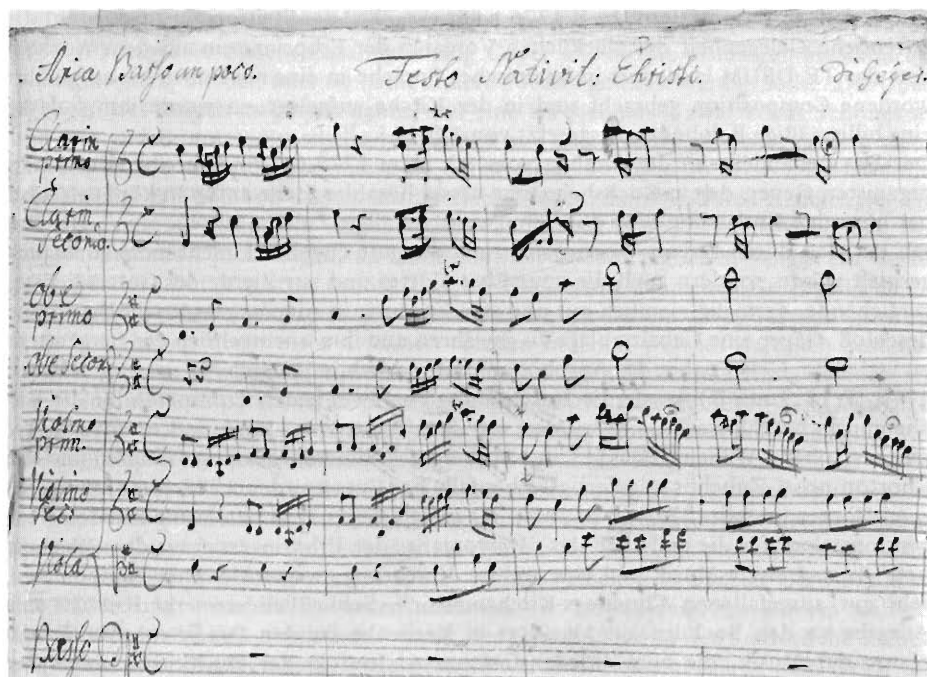 Aria Basso un poco. Festo Nativit. Christi di Geger.
Clarin
primo
Clarin
Secono.
obe
primo
obe Secon
Violino
prim.
Violino
sec.
Viola
Basso